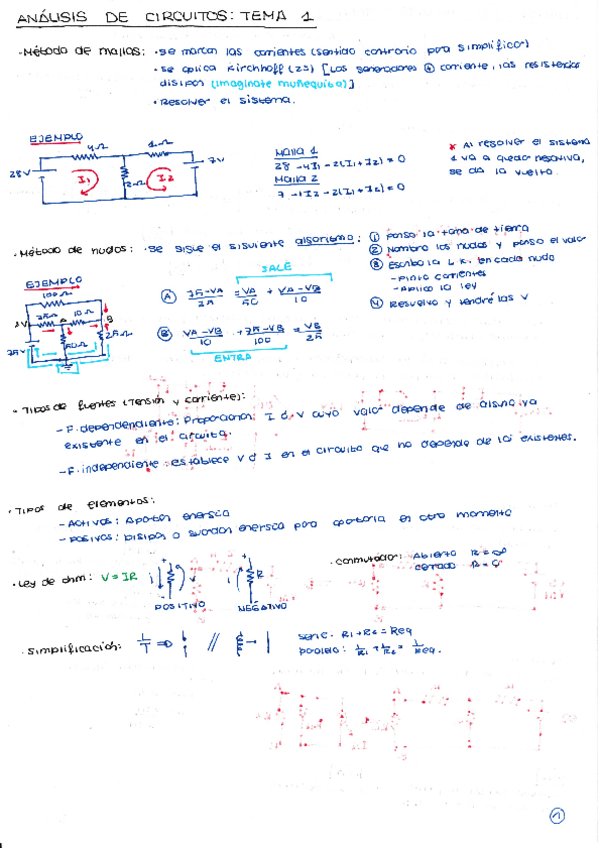 ANÁLISIS DE CIRCUITOS: TEMA 1
· Método de mallas: · se marcan las corrientes (sentido contrario para simplificar)
· se aplica Kirchhoff (2ª) [Los generadores ⊕ corriente, las resistencias
disipan (imagínate muñequito)]
· Resolver el sistema.
EJEMPLO
4Ω 1Ω
28V I1 2Ω I2 7V
Malla 1
28 - 4I1 - 2(I1 + I2) = 0
Malla 2
7 - 1I2 - 2(I1 + I2) = 0
* Al resolver el sistema
1 va a quedar negativa,
se da la vuelta.
· Método de nudos: · se sigue el siguiente algoritmo: ① pongo la toma de tierra
② Nombro los nudos y pongo el valor
③ Escribo la L.K. en cada nudo
- Pinto corrientes
- Aplico la ley
④ Resuelvo y tendré las V
EJEMPLO
100Ω
10Ω
A B
50Ω 25Ω
SALE
Ⓐ = VA/50 + VA-VB/10
Ⓑ VA-VB/10 + = VB/25
ENTRA
· Tipos de fuentes (Tensión y corriente):
- F. dependiente: Proporciona I ó V cuyo valor depende de alguna ya
existente en el circuito.
- F. independiente: establece V ó I en el circuito que no depende de las existentes.
· Tipos de elementos:
- Activos: Aportan energía
- Pasivos: Disipan o guardan energía para aportarla en otro momento
· Ley de ohm: V = IR
i V i R
POSITIVO NEGATIVO
· Conmutador: Abierto R = ∞
cerrado R = 0
· Simplificación:
serie: R1 + R2 = Req
paralelo: 1/R1 + 1/R2 = 1/Req.
1